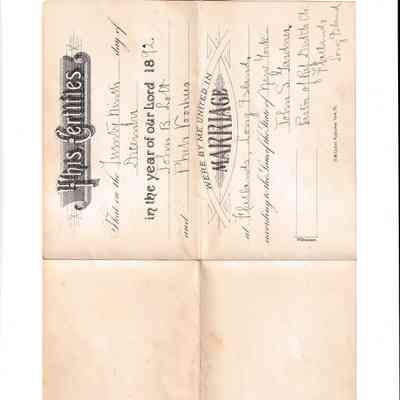 This Certifies
That on the Twenty Ninth day of
December
in the year of our Lord 1892
John B. Lott
and Phebe Voorhees
WERE BY ME UNITED IN
MARRIAGE
at Flatlands Long Island,
according to the Laws of the State of New York
John S. Gardner,
Pastor of Ref. Dutch Ch.
of Flatlands
Long Island
Witnesses